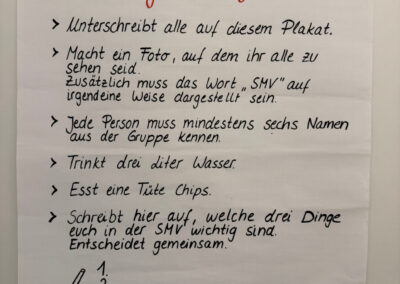 > Unterschreibt alle auf diesem Plakat.
> Macht ein Foto, auf dem ihr alle zu
sehen seid.
Zusätzlich muss das Wort „SMV" auf
irgendeine Weise dargestellt sein.
> Jede Person muss mindestens sechs Namen
aus der Gruppe kennen.
> Trinkt drei Liter Wasser.
> Esst eine Tüte Chips.
> Schreibt hier auf, welche drei Dinge
euch in der SMV wichtig sind.
Entscheidet gemeinsam.
1.